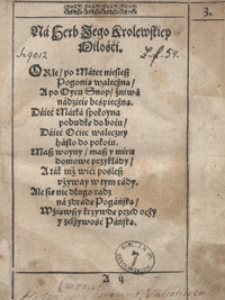 3.
Ná Herb Jego Krolewskiey
Miłośći.
ORle / po Mátce niesiesz
Pogonią waleczną /
A po Oycu Snop / żniwá
nádzieię beśpieczną.
Dáieć Mátká spokoyna
pobudkę do boiu /
Dáieć Oćiec waleczny
háśło do pokoiu.
Masz woyny / masz y miru
domowe przykłády /
A ták niż wići pośleß
vżyway w tym rády.
Ale sie nie długo rádź
ná zdrádę Pogáńską /
Wźiąwszy krzywdę przed oczy
y zelżywość Páńską.
A ij